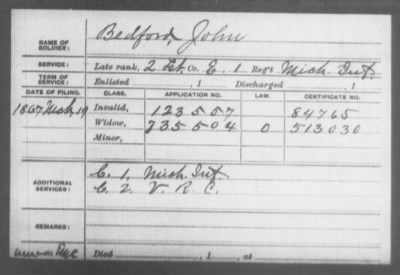 NAME OF SOLDIER: Bedford, John
SERVICE: Late rank, 2 Lt Co. E, 1 Reg't Mich. Inf.
TERM OF SERVICE: Enlisted , 1 Discharged , 1
DATE OF FILING. CLASS. APPLICATION NO. LAW. CERTIFICATE NO.
1867, Mch, 19 Invalid, 123557 84765
Widow, 735504 O 513030
Minor,
ADDITIONAL SERVICES: C. 1, Mich Inf.
C. 2 V. R. C.
REMARKS:
Died , 1 , at